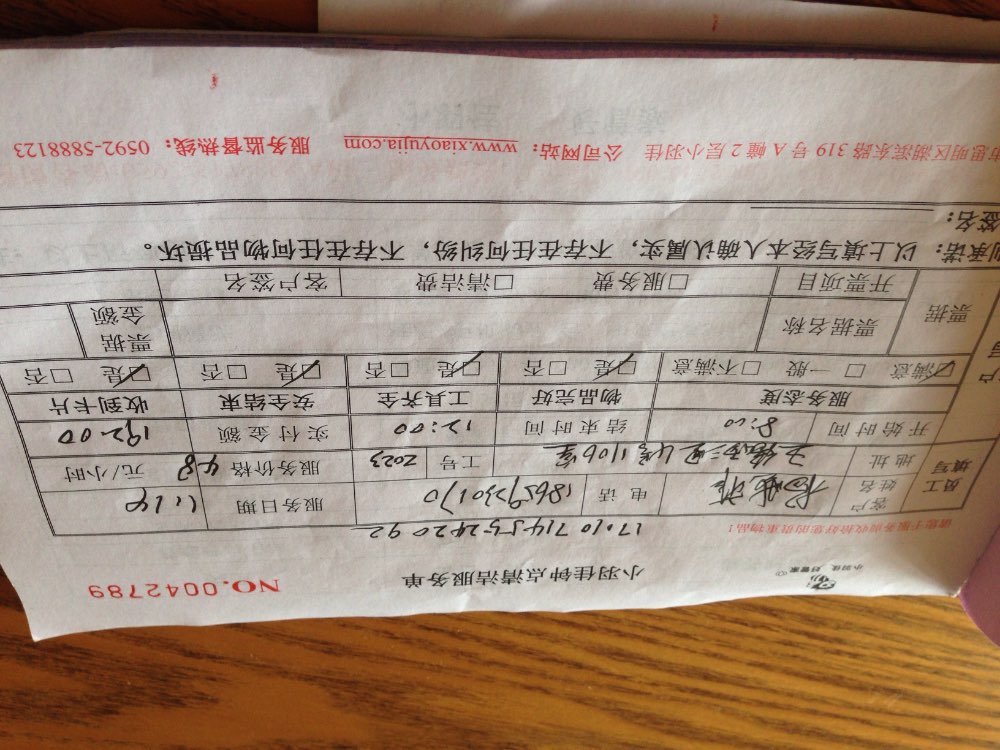 小羽佳 好管家
小羽佳钟点清洁服务单
NO.0042789
请您于服务前收拾好您的贵重物品！
1701071455242092
员工填写
客户姓名 电话 18659230170 服务日期 11.14
地址 4号1106室 工号 2023 服务价格 48 元/小时
开始时间 8:00 结束时间 12:00 实付金额 192.00
服务态度 物品完好 工具齐全 安全结束 收到卡片
☑满意 □一般 □不满意 ☑是 □否 ☑是 □否 ☑是 □否 ☑是 □否
票据 票据名称 票据金额
开票项目 □服务费 □清洁费 客户签名
承诺：以上填写经本人确认属实，不存在任何纠纷，不存在任何物品损坏。
签名：
思明区湖滨东路 319 号 A 幢 2 层小羽佳 公司网站：www.xiaoyujia.com 服务监督热线：0592-5888123